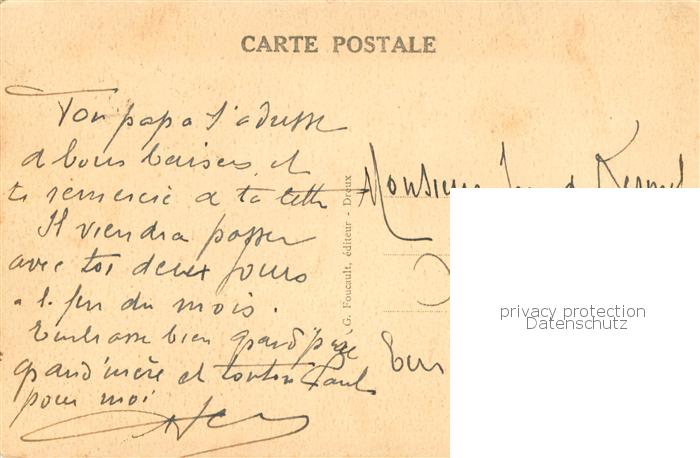 CARTE POSTALE
Ton papa t'adresse
de bons baisers et
te remercie de ta lettre
Il viendra passer
avec toi deux jours
a la fin du mois.
Embrasse bien grand'père
grand'mère et tonton Paul
pour moi
G. Foucault, éditeur - Dreux
Monsieur
privacy protection
Datenschutz